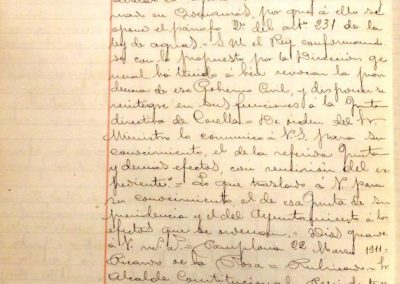 mas en Casavamos, por que á ello se
opone el párrafo 2º del artº 231 de la
ley de aguas.= S. M. el Rey conforman
se con lo propuesto por la Dirección ge
neral ha tenido á bien revocar la provi
dencia de ese Gobierno Civil, y disponer se
reintegre en sus funciones á la Junta
directiva de Corella.= De orden del Sr
Ministro lo comunico á V.S. para su
conocimiento, el de la referida Junta
y demas efectos, con remisión del ex
pediente".= Lo que traslado á V. para
su conocimiento, el de esa Junta de su
presidencia y el del Ayuntamiento á los
efectos que se ordenan.= Dios guarde
á V. m.s a.s= Pamplona 22 Marzo 1911=
Ricardo de la Rosa= Rubricado= Sr
Alcalde Constitucional